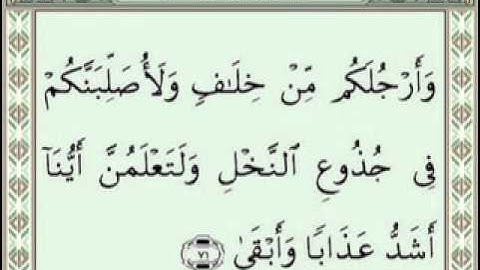 وَأَرْجُلَكُم مِّنْ خِلَٰفٍ وَلَأُصَلِّبَنَّكُمْ
فِى جُذُوعِ ٱلنَّخْلِ وَلَتَعْلَمُنَّ أَيُّنَآ
أَشَدُّ عَذَابًا وَأَبْقَىٰ ٧١